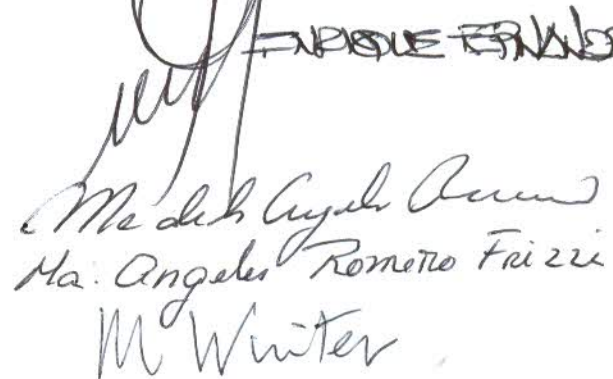 ENRIQUE FERNANDE
Ma de los Angeles
Ma. Angeles Romero Frizzi
M Winter